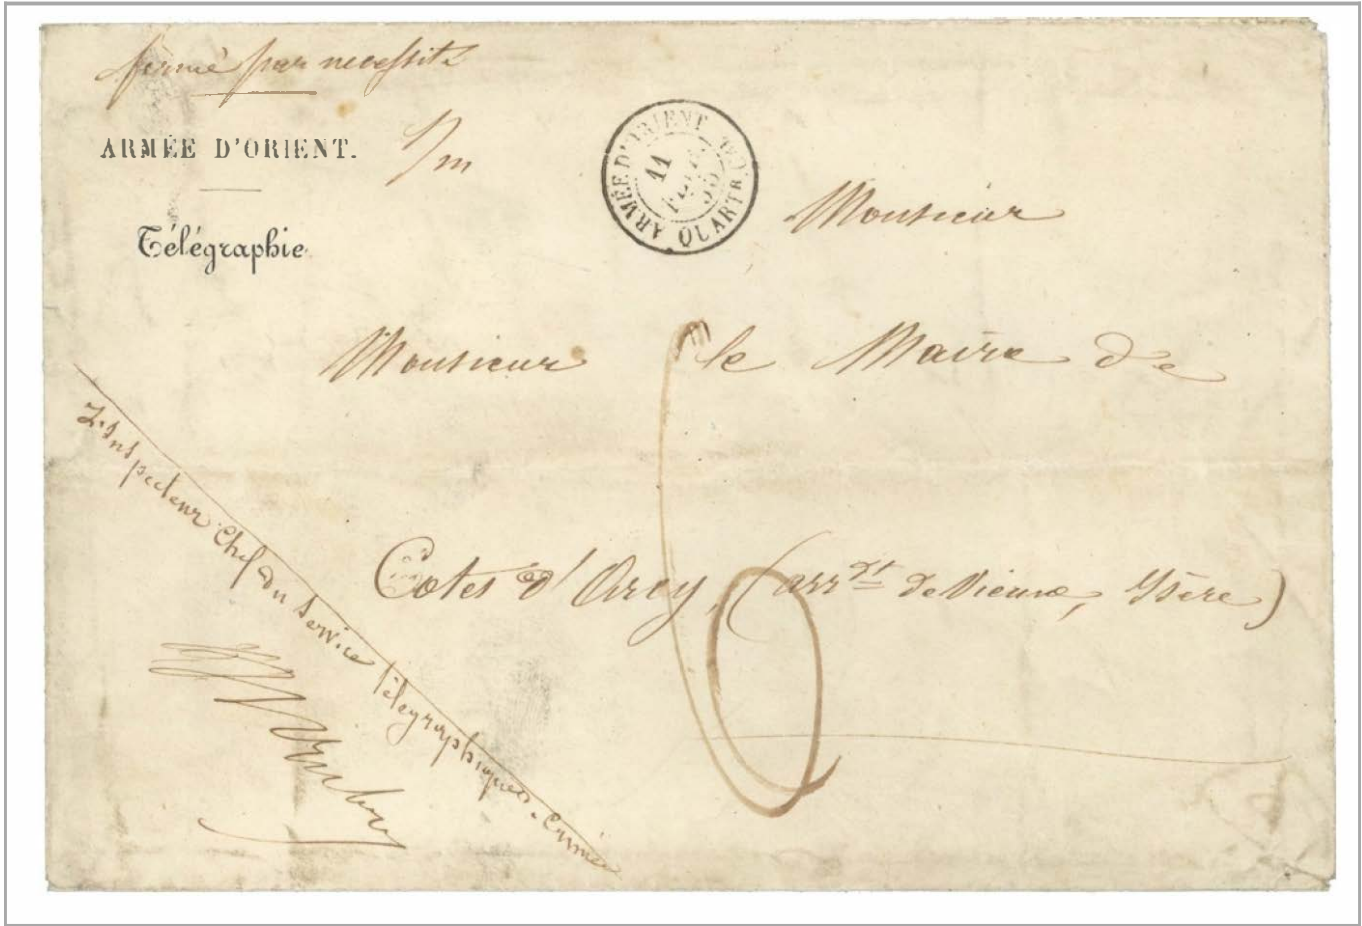 fermé par necessité
ARMÉE D'ORIENT.
S/m
Télégraphie
ARMÉE D'ORIENT QUARTR. GAL.
11
55
Monsieur
Monsieur le Maire de
Cotes d'Arey, (arrdt de Vienne, Isère)
6
L'Inspecteur Chef du Service Télégraphique. Crimée